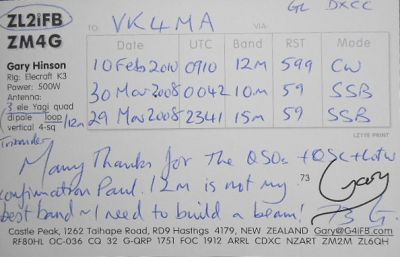 GL DXCC
ZL2iFB
TO: VK4MA VIA:
ZM4G
Date UTC Band RST Mode
Gary Hinson
Rig: Elecraft K3
Power: 500W
Antenna:
3 ele Yagi quad
dipole loop /12m
vertical 4-sq
10 Feb 2010 0910 12m 599 CW
30 Mar 2008 0042 10m 59 SSB
29 Mar 2008 2341 15m 59 SSB
LZ7YE PRINT
Many Thanks for the QSOs + QSL + LoTW
confirmation Paul. 12m is not my 73 Gary
best band ~ I need to build a beam! 73 G.
Castle Peak, 1262 Taihape Road, RD9 Hastngs 4179, NEW ZEALAND Gary@G4iFB.com
RF80HL OC-036 CQ 32 G-QRP 1751 FOC 1912 ARRL CDXC NZART ZM2M ZL6QH